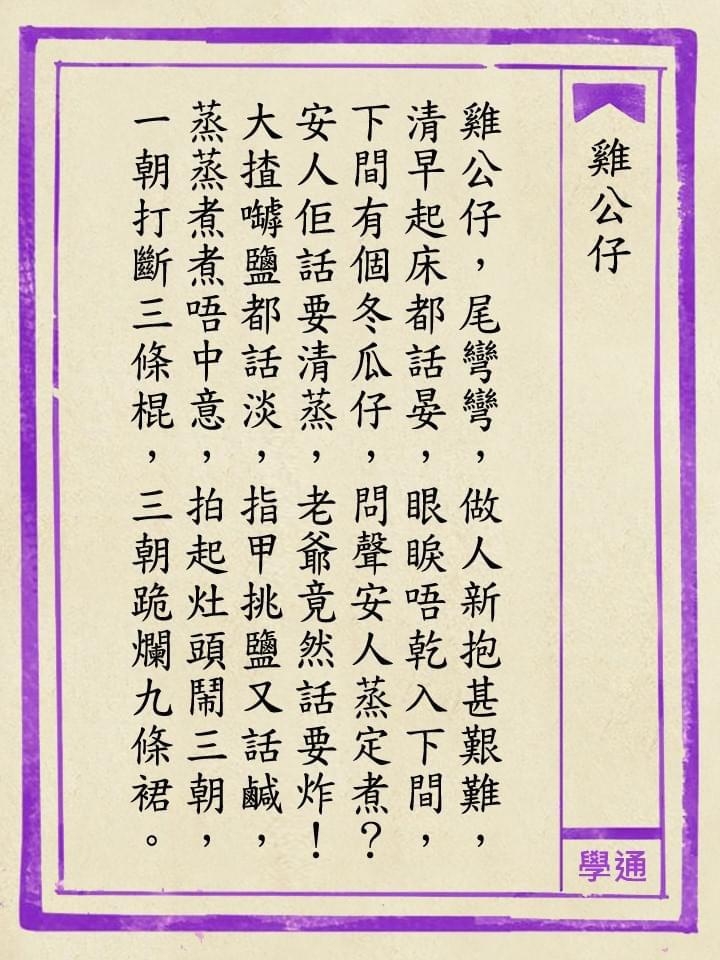 雞公仔
學通
雞公仔，尾彎彎，做人新抱甚艱難，
清早起床都話晏，眼睩唔乾入下間，
下間有個冬瓜仔，問聲安人蒸定煮？
安人佢話要清蒸，老爺竟然話要炸！
大揸嚹鹽都話淡，指甲挑鹽又話鹹，
蒸蒸煮煮唔中意，拍起灶頭鬧三朝，
一朝打斷三條棍，三朝跪爛九條裙。